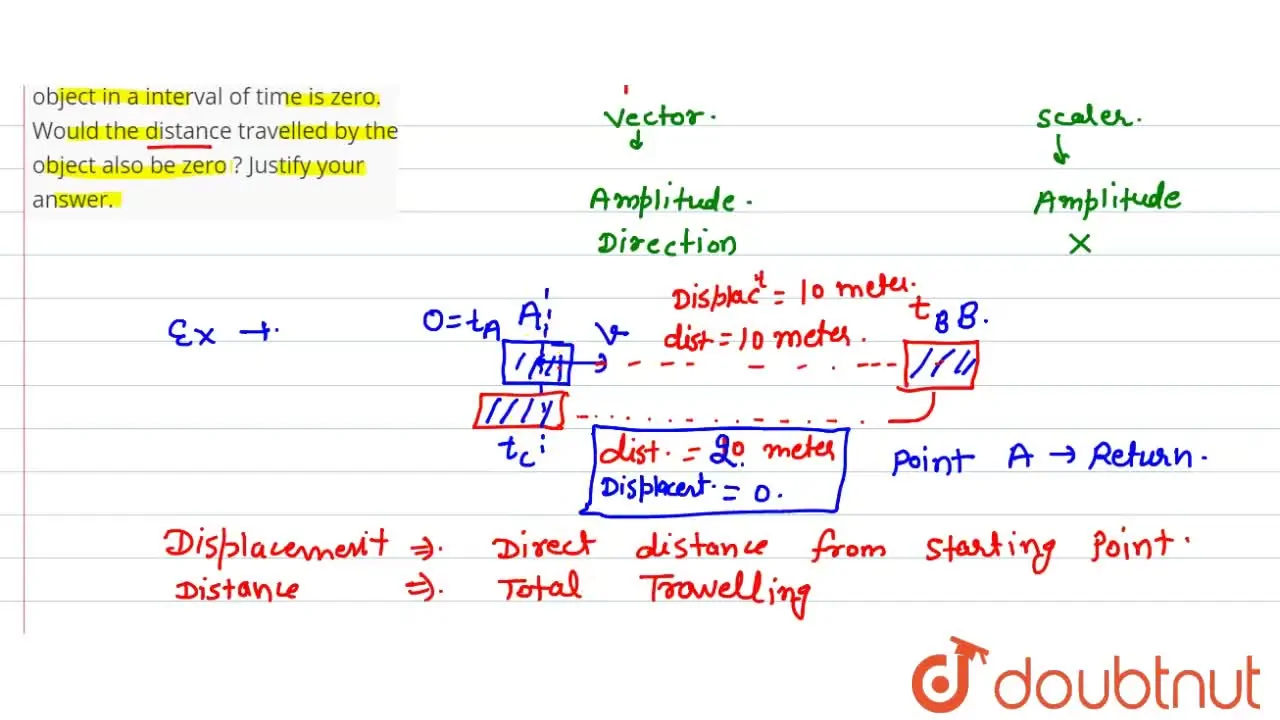 object in a interval of time is zero.
Would the distance travelled by the
object also be zero ? Justify your
answer.
Vector.
Amplitude.
Direction
Scaler.
Amplitude
X
Ex →
0=tA A
V
Displact = 10 meter.
dist = 10 meter.
tB B.
tc
dist. = 20 meter
Displacent. = 0.
Point A → Return.
Displacement ⇒ Direct distance from starting Point.
Distance ⇒ Total Travelling
doubtnut